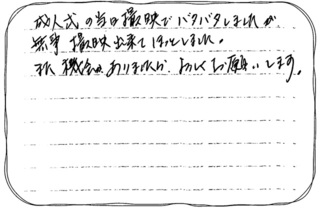 成人式の当日撮映でバタバタしましたが
無事撮映出来てほっとしました。
また機会がありましたら、よろしくお願いします。